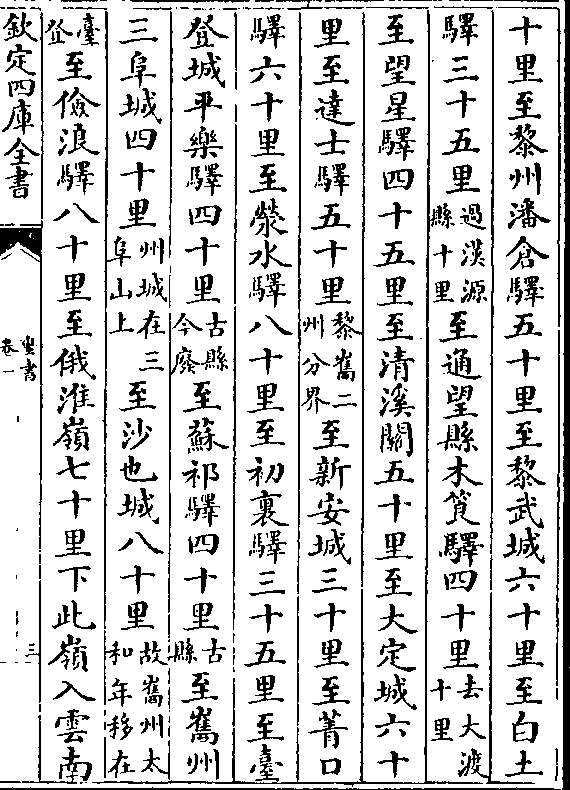 十里至黎州潘倉驛五十里至黎武城六十里至白土
驛三十五里過漢源縣十里至通望縣木筤驛四十里去大渡十里
至望星驛四十五里至清溪關五十里至大定城六十
里至達士驛五十里黎巂二州分界至新安城三十里至菁口
驛六十里至滎水驛八十里至初裹驛三十五里至臺
登城平樂驛四十里古縣今廢至蘇祁驛四十里古縣至巂州
三阜城四十里州城在三阜山上至沙也城八十里故巂州太和年移在
臺登至儉浪驛八十里至俄淮嶺七十里下此嶺入雲南
欽定四庫全書
蠻書
卷一
三